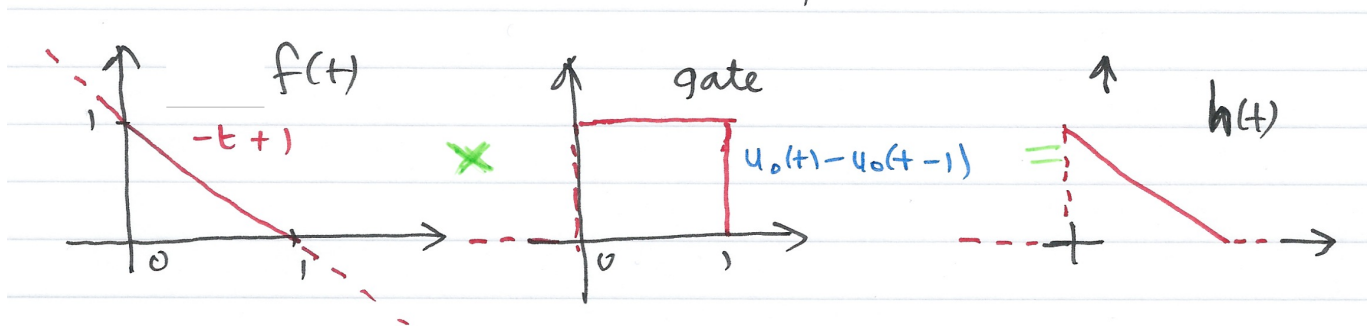 f(t)
1
-t+1
0
1
×
gate
u₀(t)-u₀(t-1)
0
1
=
h(t)